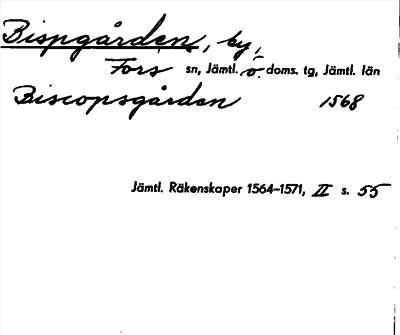 Bispgården, by,
Fors sn, Jämtl. ö. doms. tg, Jämtl. län
Biscopsgården 1568
Jämtl. Räkenskaper 1564-1571, II s. 55